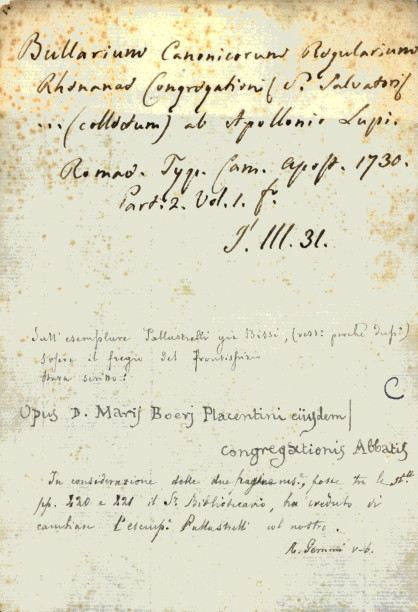 Bullarium Canonicorum Regularium
Rhenanae Congregationis S. Salvatoris
... (collectum) ab Apollonio Lupi.
Romae. Typ. Cam. Apost. 1730.
Part. 2. Vol. 1. fo
I. III. 31.
Sull'esemplare Pallastrelli già Bissi, (rest: perchè dup:)
sopra il fregio del frontispizio
stava scritto:
C
Opus D. Maris Boers Placentini eiusdem
congregationis Abbatis
In considerazione delle due pagine ms., poste tra le
pp. 220 e 221 il Sr. Bibliotecario, ha creduto di
cambiare l'esemp. Pallastrelli col nostro.
A. Gemmi v-b.